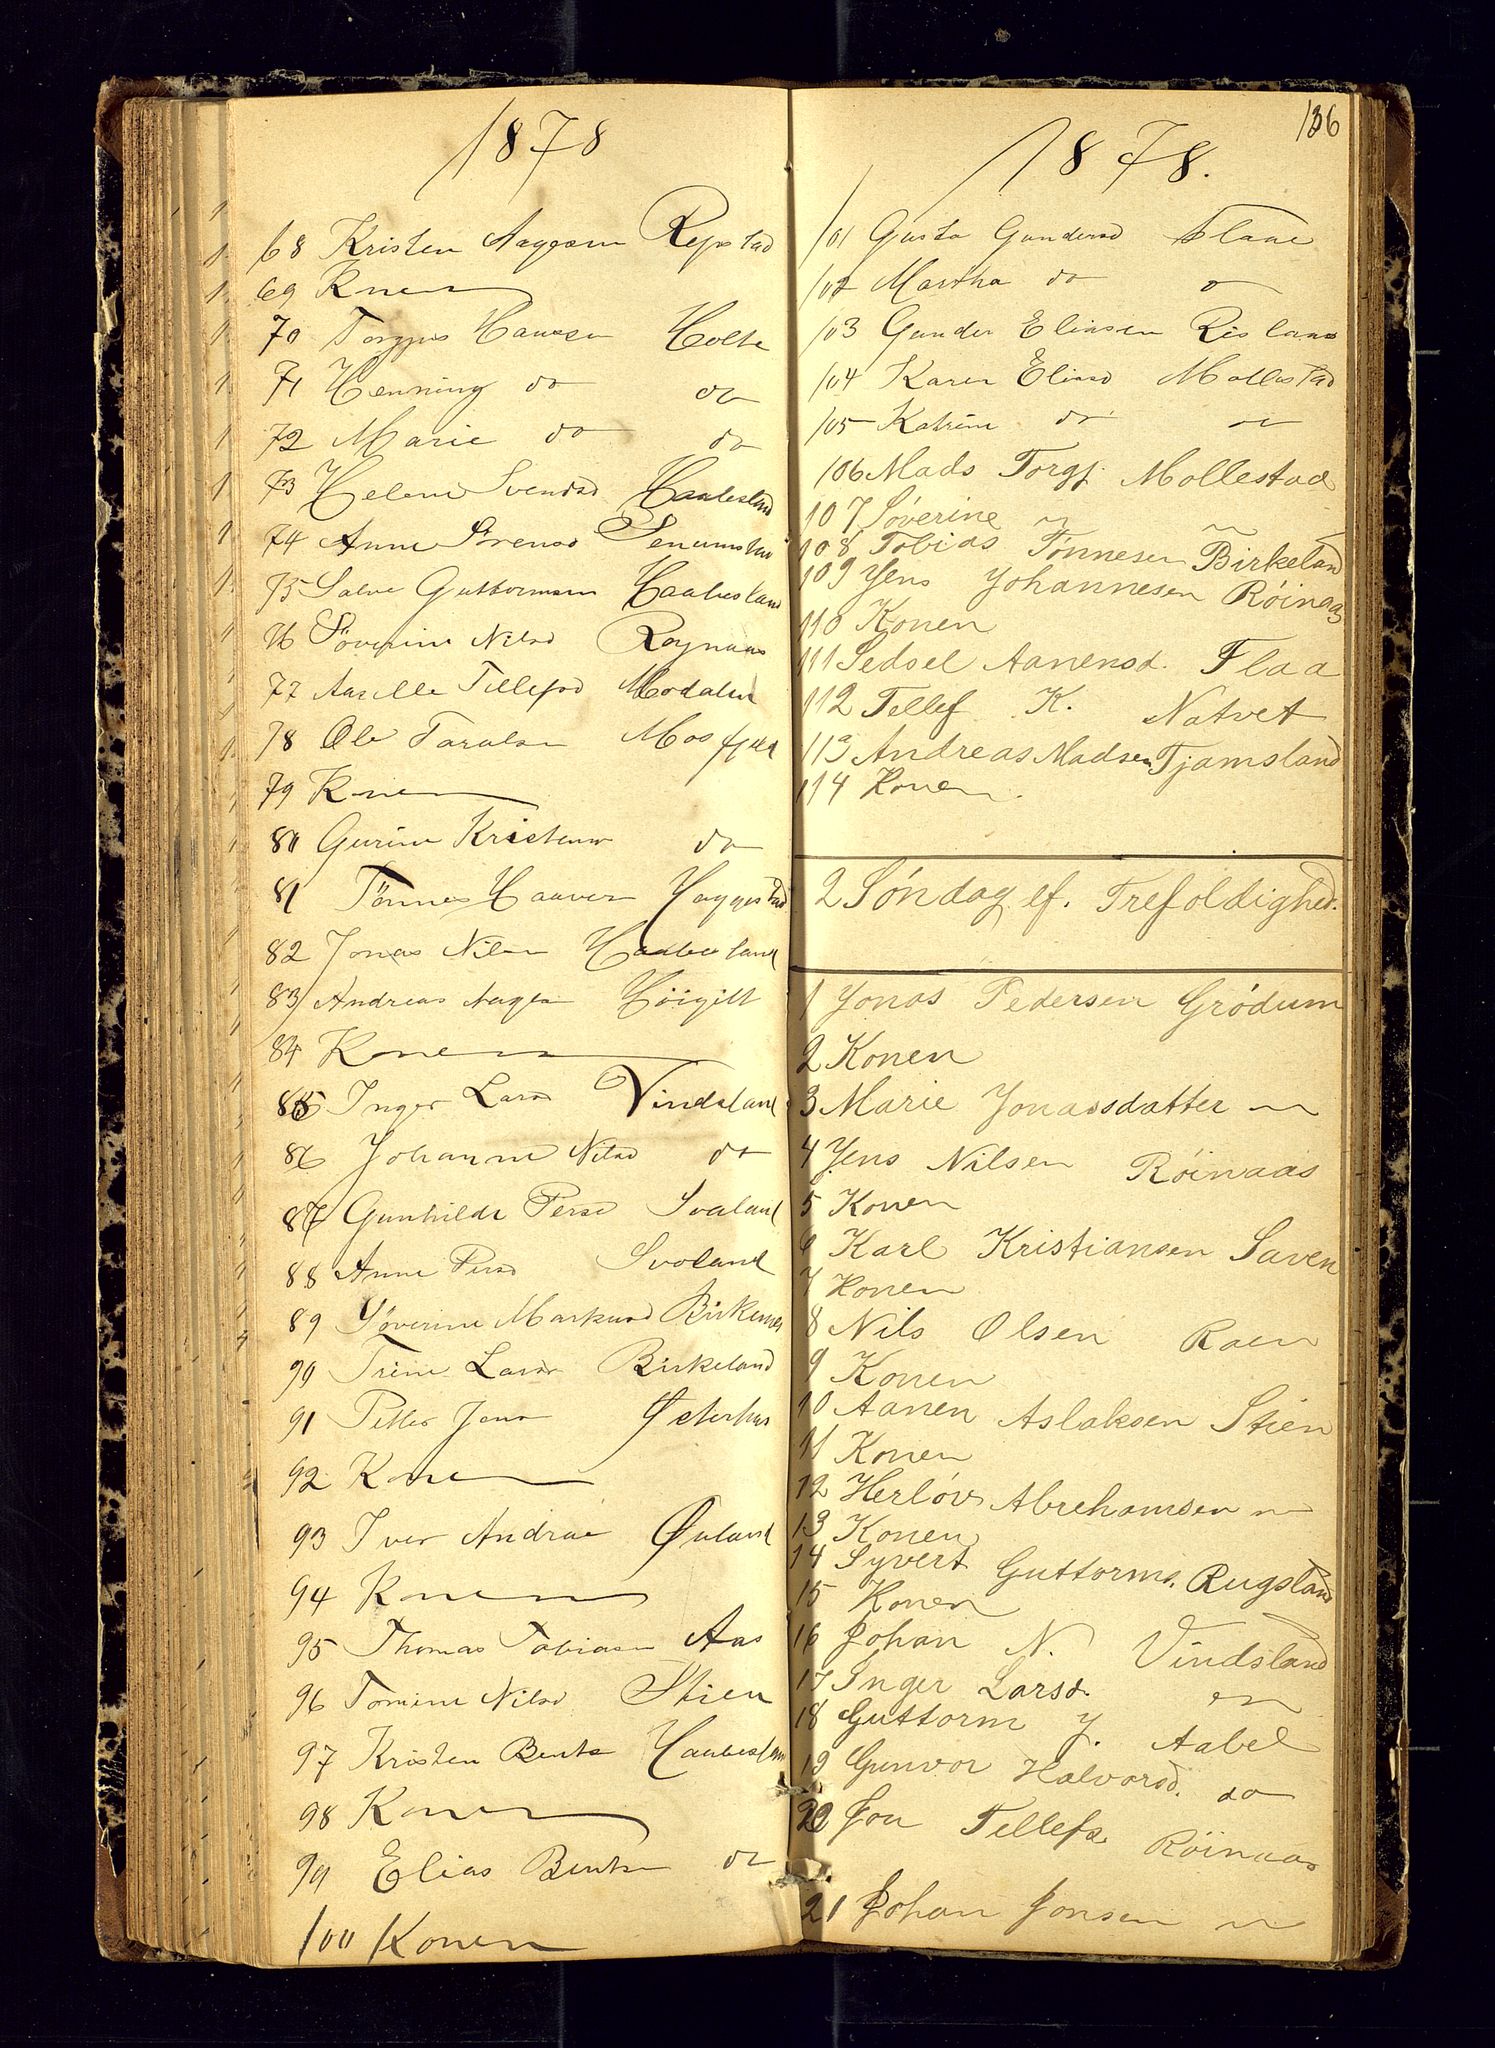 1878
68 Kristen Aagesen Repstad
69 Konen
70 Torgjus Hanssen Holte
71 Henning do do
72 Marie do do
73 Helene Svendsd Haabesland
74 Anne Sørensd Senumstad
75 Salve Guttormsen Haabesland
76 Søverine Nilsd Røynaas
77 Aasille Tellefsd Modalen
78 Ole Taralsen Mosfjeld
79 Konen
80 Gurine Kristensd do
81 Tønnes Haaver Haggestad
82 Jonas Nilsen Haabesland
83 Andreas Aagesen Høigilt
84 Konen
85 Inger Larsd Vindsland
86 Johanne Nilsd do
87 Gunhilde Persd Svaland
88 Anne Persd Svoland
89 Søverine Markusd Birkenes
90 Trine Larsd Birkeland
91 Petter Jens Østerhus
92 Konen
93 Iver Andrae Øuland
94 Konen
95 Thomas Tobiasen Aas
96 Tomine Nilsd Stien
97 Kristen Bents Haabesland
98 Konen
99 Elias Bents do
100 Konen
136
1878.
101 Gusta Gundersd Flaae
102 Martha do
103 Gunder Eliasen Risland
104 Karen Eliasd Mollestad
105 Katrine do
106 Mads Torgj. Mollestad
107 Søverine
108 Tobias Tønnesen Birkeland
109 Jens Johannesen Røinaas
110 Konen
111 Sedsel Aanensd. Flaa
112 Tellef K. Natvet
113 Andreas Madsen Tjamsland
114 Konen.
2 Søndag ef. Trefoldighed.
1 Jonas Pedersen Grødum
2 Konen
3 Marie Jonassdatter
4 Jens Nilsen Røinaas
5 Konen
6 Karl Kristiansen Saven
7 Konen
8 Nils Olsen Raen
9 Konen
10 Aanen Aslaksen Stien
11 Konen
12 Herløv Abrehamsen
13 Konen
14 Syvert Guttorms. Rugsland
15 Konen
16 Johan N. Vindsland
17 Inger Larsd.
18 Guttorm J. Aabel
19 Gunvor Halvorsd. do
20 Jon Tellefs. Røinaas
21 Johan Jonsen